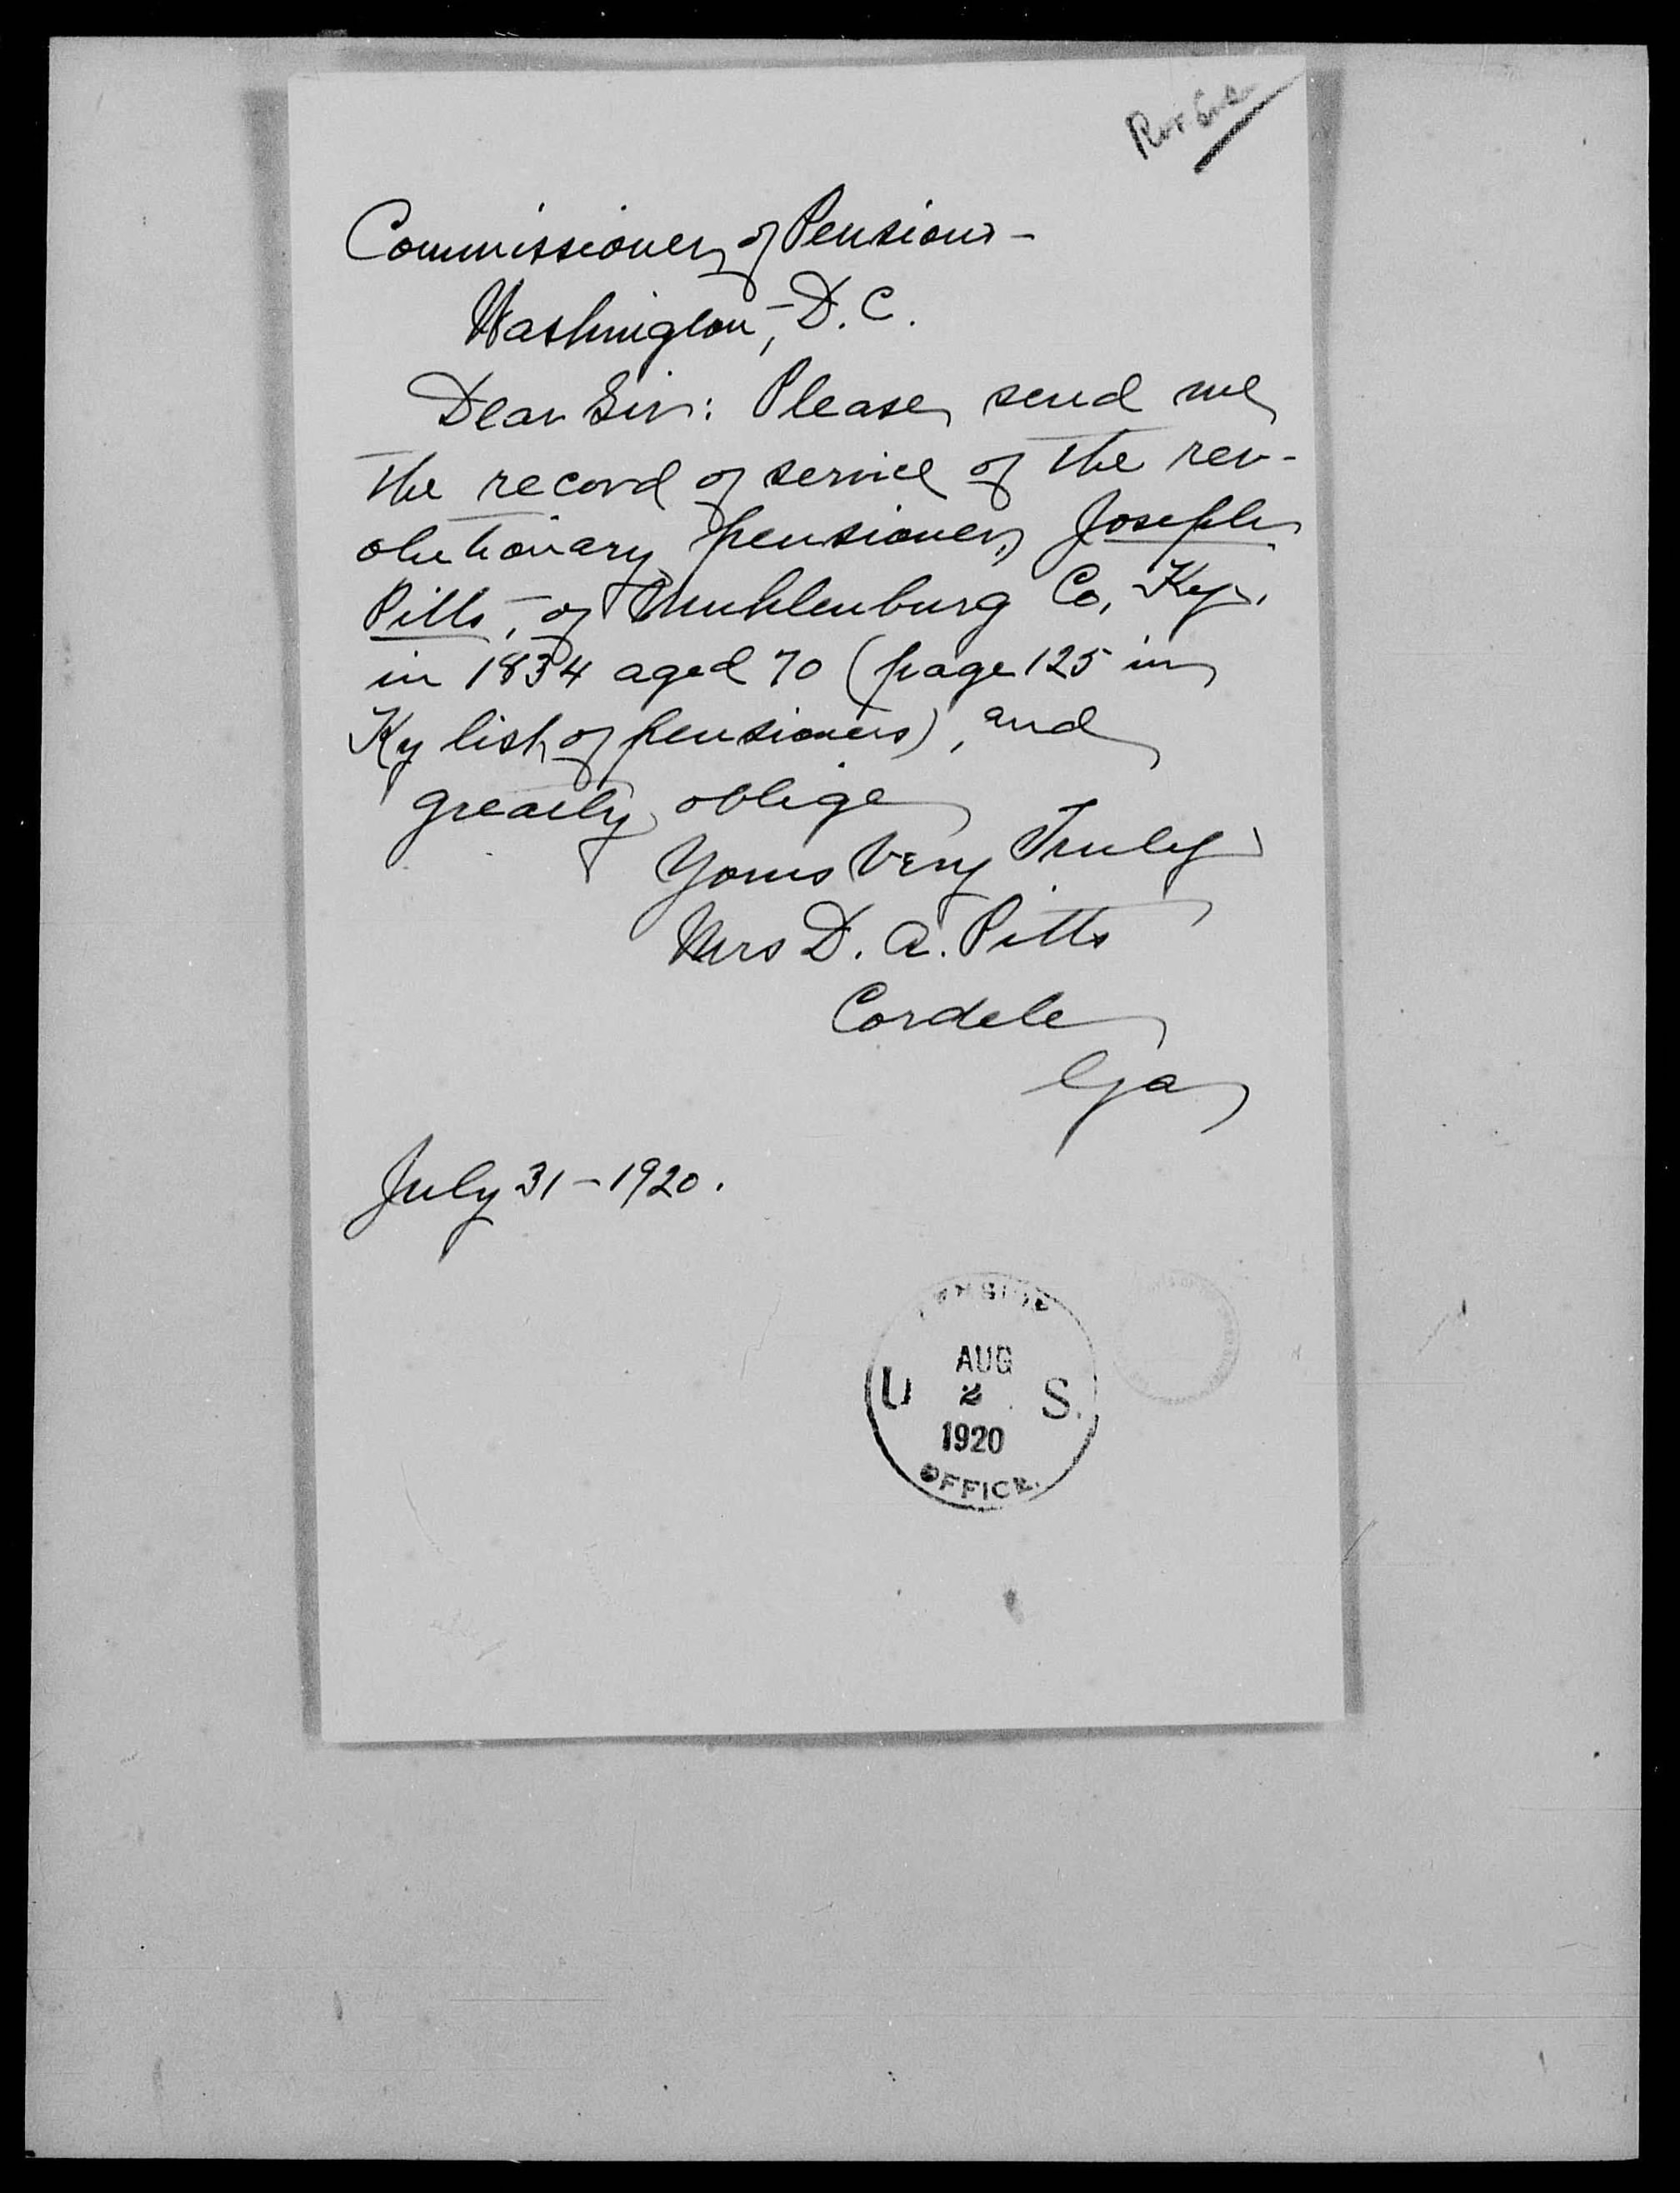 Commissioner of Pensions -
Washington, D.C.
Dear Sir: Please send me
the record of service of the rev-
olutionary pensioner, Joseph
Pitts, of Muhlenburg Co, Ky.
in 1834 aged 70 (page 125 in
Ky list of pensioners), and
greatly oblige
Yours Very Truly
Mrs D. A. Pitts
Cordele
Ga
July 31 - 1920.
PENSION
AUG
U 2 S.
1920
OFFICE.